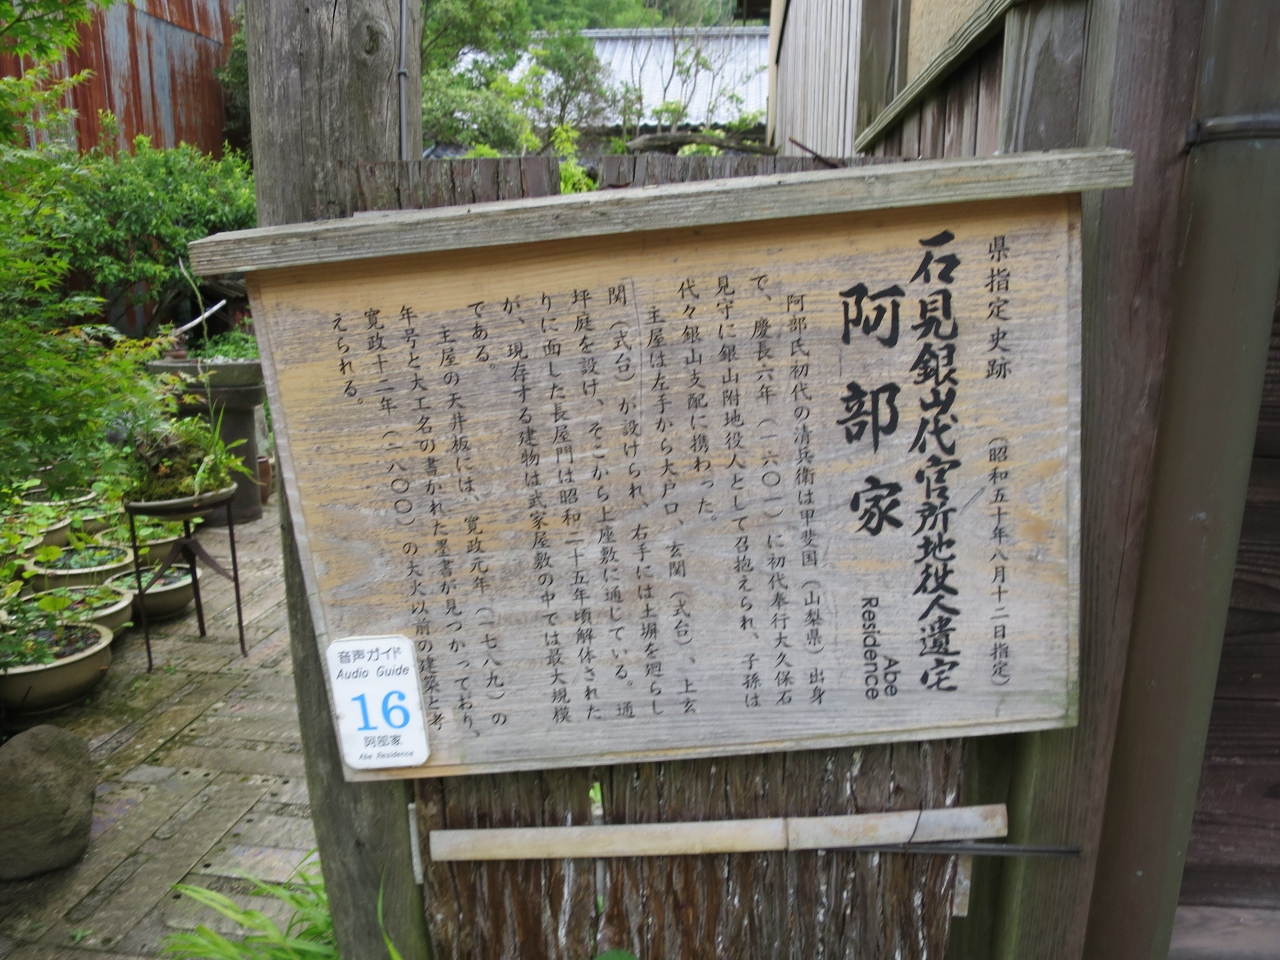 県指定史跡 (昭和五十年八月十二日指定)
石見銀山代官所地役人遺宅
阿部家
Abe
Residence
阿部氏初代の清兵衛は甲斐国(山梨県)出身
で、慶長六年(一六〇一)に初代奉行大久保石
見守に銀山附地役人として召抱えられ、子孫は
代々銀山支配に携わった。
主屋は左手から大戸口、玄関(式台)、上玄
関(式台)が設けられ、右手には土塀を廻らし
坪庭を設け、そこから上座敷に通じている。通
りに面した長屋門は昭和二十五年頃解体された
が、現存する建物は武家屋敷の中では最大規模
である。
主屋の天井板には、寛政元年(一七八九)の
年号と大工名の書かれた墨書が見つかっており、
寛政十二年(一八〇〇)の大火以前の建築と考
えられる。
音声ガイド
Audio Guide
16
阿部家
Abe Residence